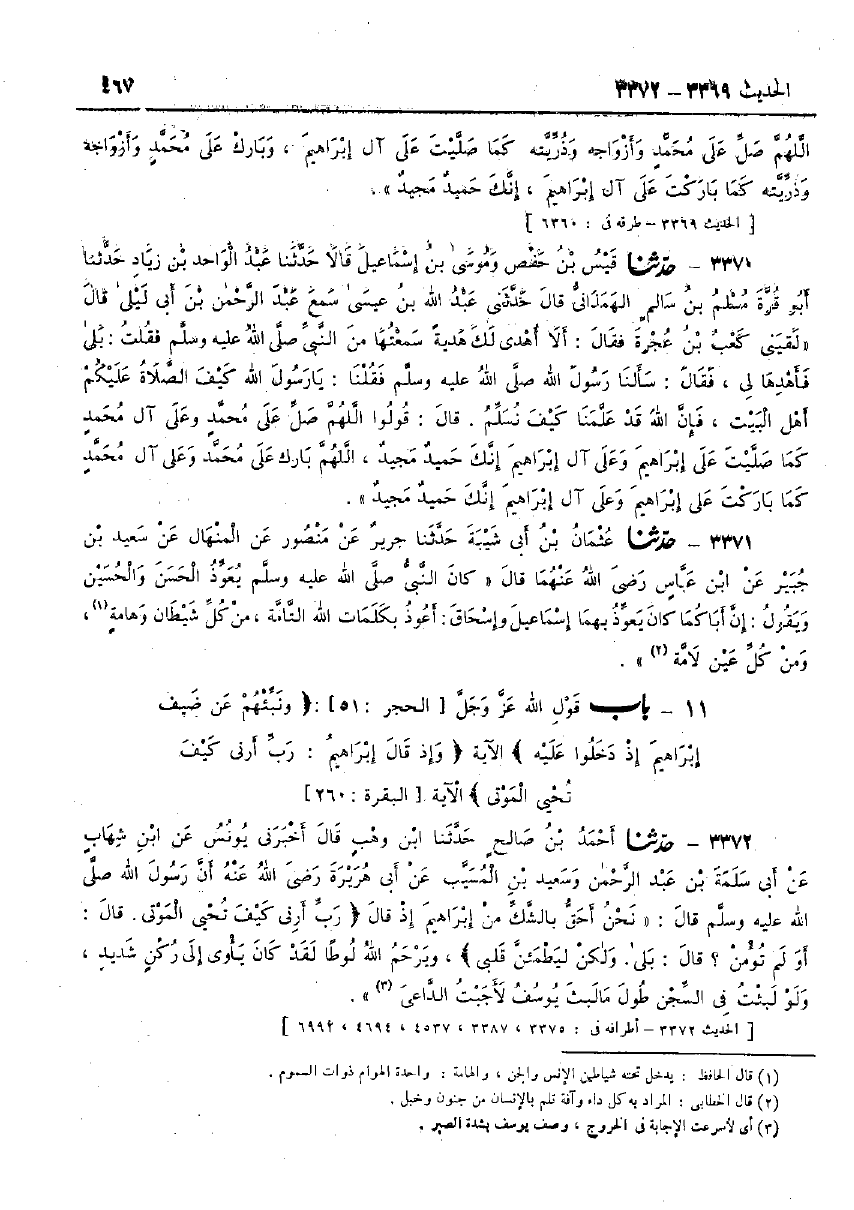 الحديث ٣٣٦٩ - ٣٣٧٢ ٤٦٧
اللَّهُمَّ صَلِّ عَلَى مُحَمَّدٍ وَأَزْوَاجِهِ وَذُرِّيَّتِه كَمَا صَلَّيْتَ عَلَى آلِ إِبْرَاهِيمَ ، وَبَارِكْ عَلَى مُحَمَّدٍ وَأَزْوَاجِهِ
وَذُرِّيَّتِه كَمَا بَارَكْتَ عَلَى آلِ إِبْرَاهِيمَ ، إِنَّكَ حَمِيدٌ مَجِيدٌ » .
[ الحديث ٣٣٦٩ – طرفه فى : ٦٣٦٠ ]
٣٣٧١ - حدّثنا قَيْسُ بْنُ حَفْصٍ وَمُوسَىٰ بنُ إِسْمَاعِيلَ قَالَا حَدَّثَنَا عَبْدُ الْوَاحِدِ بْنِ زِيَادٍ حَدَّثَنَا
أَبُو قُرَّةَ مُسْلِمُ بنُ سَالِمٍ الهَمَدَانِيُّ قالَ حَدَّثَنِى عَبْدُ اللهِ بنُ عِيسَى سَمِعَ عَبْدَ الرَّحْمٰنِ بْنَ أَبِى لَيْلَى قَالَ
«لَقِيَنِى كَعْبُ بْنُ عُجْرَةَ فقَالَ : أَلَا أُهْدِى لَكَ هَدِيةً سَمِعْتُهَا مِنَ النَّبِيِّ صلَّى اللهُ عليه وسلَّم فقُلْتُ : بَلَىٰ
فَأَهْدِهَا لِى ، فَقَالَ : سَأَلنَا رَسُولَ اللهِ صلَّى اللهُ عليه وسلَّم فَقُلْنَا : يَارَسُولَ اللهِ كَيْفَ الصَّلَاةُ عَلَيْكُمْ
أَهْلَ الْبَيْتِ ، فَإِنَّ اللهَ قَدْ عَلَّمَنَا كَيْفَ نُسَلِّمُ . قالَ : قُولُوا اللَّهُمَّ صَلِّ عَلَى مُحمَّدٍ وعَلَى آلِ مُحَمدٍ
كَمَا صَلَّيْتَ عَلَى إِبْرَاهِيمَ وَعَلَى آلِ إِبْرَاهِيمَ إِنَّكَ حَمِيدٌ مَجِيدٌ ، اللَّهُمَّ بَارِكْ عَلَى مُحَمَّدٍ وَعَلَى آلِ مُحَمَّدٍ
كَمَا بَارَكْتَ عَلى إِبْرَاهِيمَ وَعَلَى آلِ إِبْرَاهِيمَ إِنَّكَ حَمِيدٌ مَجِيدٌ » .
٣٣٧١ - حدّثنا عُثْمَانُ بْنُ أَبِى شَيْبَةَ حَدَّثَنا جريرٌ عَنْ مَنْصُورٍ عَنِ الْمِنْهَالِ عَنْ سَعِيدِ بْنِ
جُبَيْرٍ عَنْ ابْنِ عَبَّاسٍ رَضِىَ اللهُ عَنْهُمَا قالَ « كانَ النَّبِيُّ صلَّى اللهُ عليه وسلَّم يُعَوِّذُ الْحَسَنَ وَالْحُسَيْنَ
وَيَقُولُ : إِنَّ أَبَاكُمَا كانَ يَعَوِّذُ بِهمَا إِسْمَاعِيلَ وإِسْحَاقَ : أَعُوذُ بكَلِمَاتِ اللهِ التَّامَّة ، مِنْ كُلِّ شَيْطَانٍ وَهامةٍ(١) ،
وَمِنْ كُلِّ عَيْنٍ لَامَّة (٢) » .
١١ - باب قَوْلِ اللهِ عَزَّ وَجَلَّ [ الحجر : ٥١ ] : ﴿ وَنَبِّئْهُمْ عَن ضَيفِ
إِبْرَاهِيمَ إِذْ دَخَلُوا عَلَيْهِ ﴾ الآية ﴿ وَإِذ قَالَ إِبْرَاهِيمُ : رَبِّ أَرِنى كَيْفَ
تُحْيِى الْمَوْتى ﴾ الْآيَة [ البقرة : ٢٦٠ ]
٣٣٧٢ - حدّثنا أَحْمَدُ بْنُ صَالحٍ حَدَّثَنَا ابن وهْبٍ قَالَ أَخْبَرَنِى يُونُسُ عَنِ ابْنِ شِهَابٍ
عَنْ أَبِى سَلَمَةَ بْنِ عَبدِ الرَّحْمٰنِ وَسَعِيدِ بنِ الْمُسَيَّبِ عَنْ أَبِى هُرَيْرَةَ رَضِىَ اللهُ عَنْهُ أَنَّ رَسُولَ اللهِ صلَّى
الله عليه وسلَّم قالَ : « نَحْنُ أَحَقُّ بالشَّكِّ مِنْ إِبْرَاهِيمَ إِذْ قالَ ﴿ رَبِّ أَرِنِى كَيْفَ تُحْيِى الْمَوْتَى . قالَ :
أَوَ لَمْ تُؤْمِنْ ؟ قالَ : بَلَىٰ. وَلَكِنْ لِيَطْمَئِنَّ قَلبِى ﴾ ، ويَرْحَمُ اللهُ لُوطًا لَقَدْ كَانَ يَأْوِى إِلَى رُكْنٍ شَدِيدٍ ،
وَلَوْ لَبِثْتُ فِى السِّجْنِ طُولَ مَالَبِثَ يُوسُفُ لَأَجَبْتُ الدَّاعِىَ (٣) » .
[ الحديث ٣٣٧٢ – أطرافه فى : ٣٣٧٥ ، ٣٣٨٧ ، ٤٥٣٧ ، ٤٦٩٤ ، ٦٩٩٢ ]
(١) قال الحافظ : يدخل تحته شياطين الإنس والجن ، والهامة : واحدة الهوام ذوات السموم .
(٢) قال الخطابى : المراد به كل داء وآفة تلم بالإنسان من جنون وخبل .
(٣) أى لأسرعت الإجابة فى الخروج ، وصف يوسف بشدة الصبر .